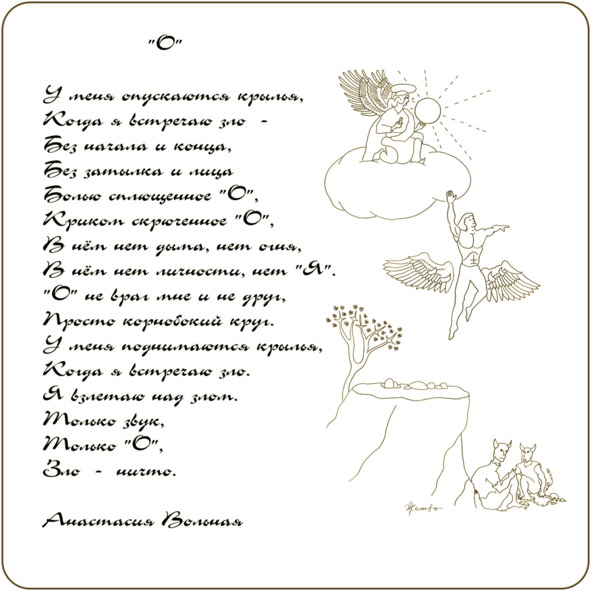 "О"
У меня опускаются крылья,
Когда я встречаю зло -
Без начала и конца,
Без затылка и лица
Болью сплющенное "О",
Криком скрюченное "О",
В нём нет дыма, нет огня,
В нём нет личности, нет "Я".
"О" не враг мне и не друг,
Просто кривобокий круг.
У меня поднимаются крылья,
Когда я встречаю зло.
Я взлетаю над злом.
Только звук,
Только "О",
Зло - ничто.
Анастасия Вольная